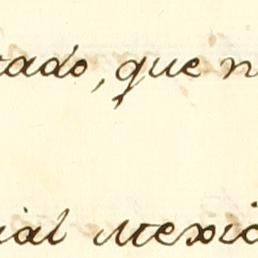 tado, que n
ial Mexic